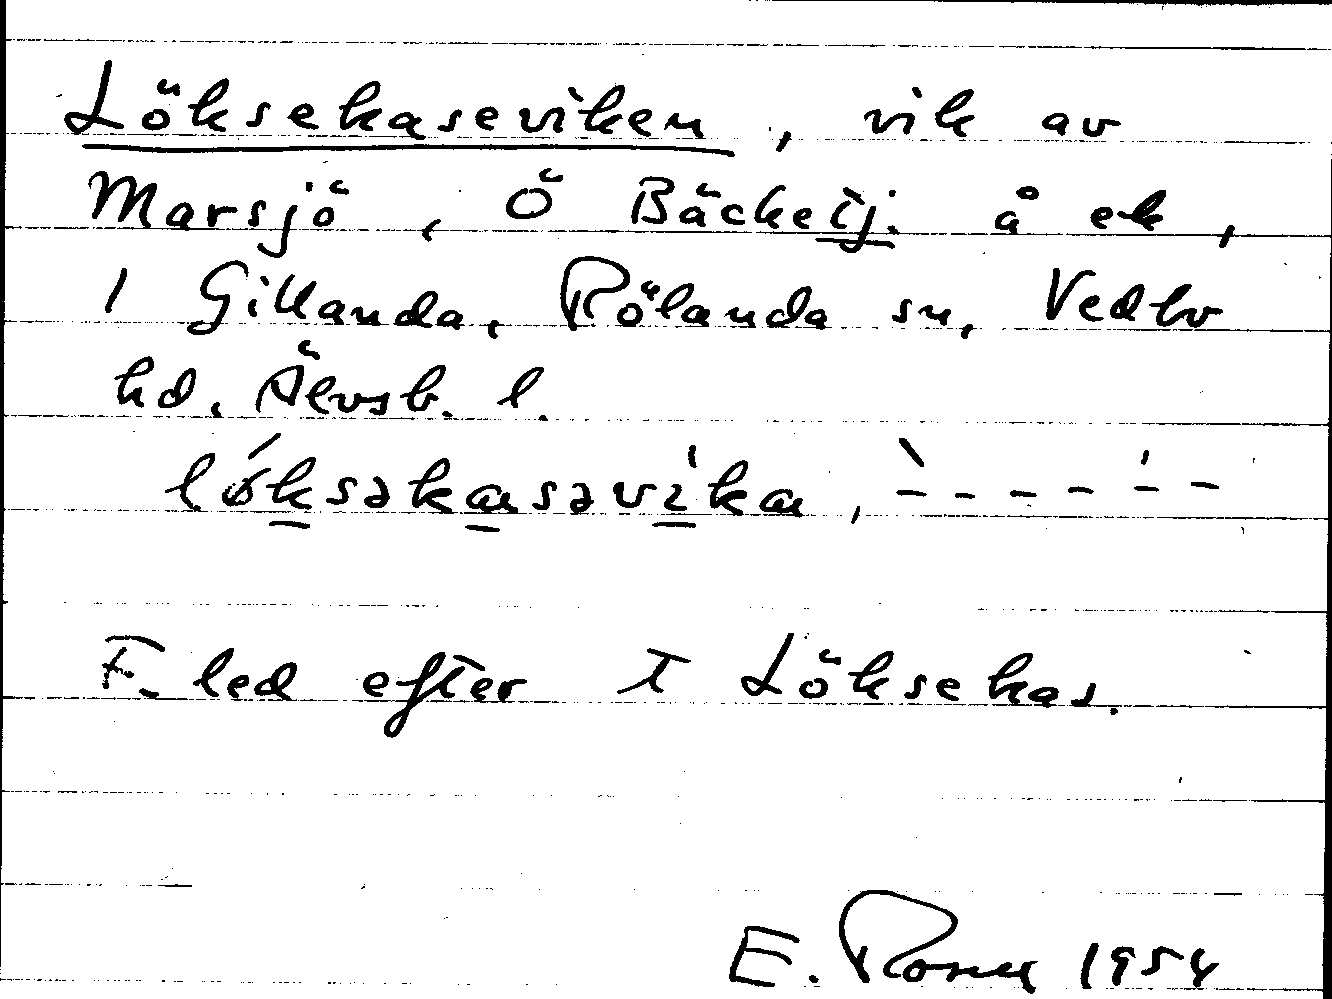 Löksekaseviken, vik av
Marsjö, Ö Bäcketj. å ek,
1 Gillanda, Rölanda sn, Vedbo
hd. Älvsb. l.
lóksəkasəvìka, `- - - - ˈ- -
F. led efter t Löksekas.
E. Rosen 1954